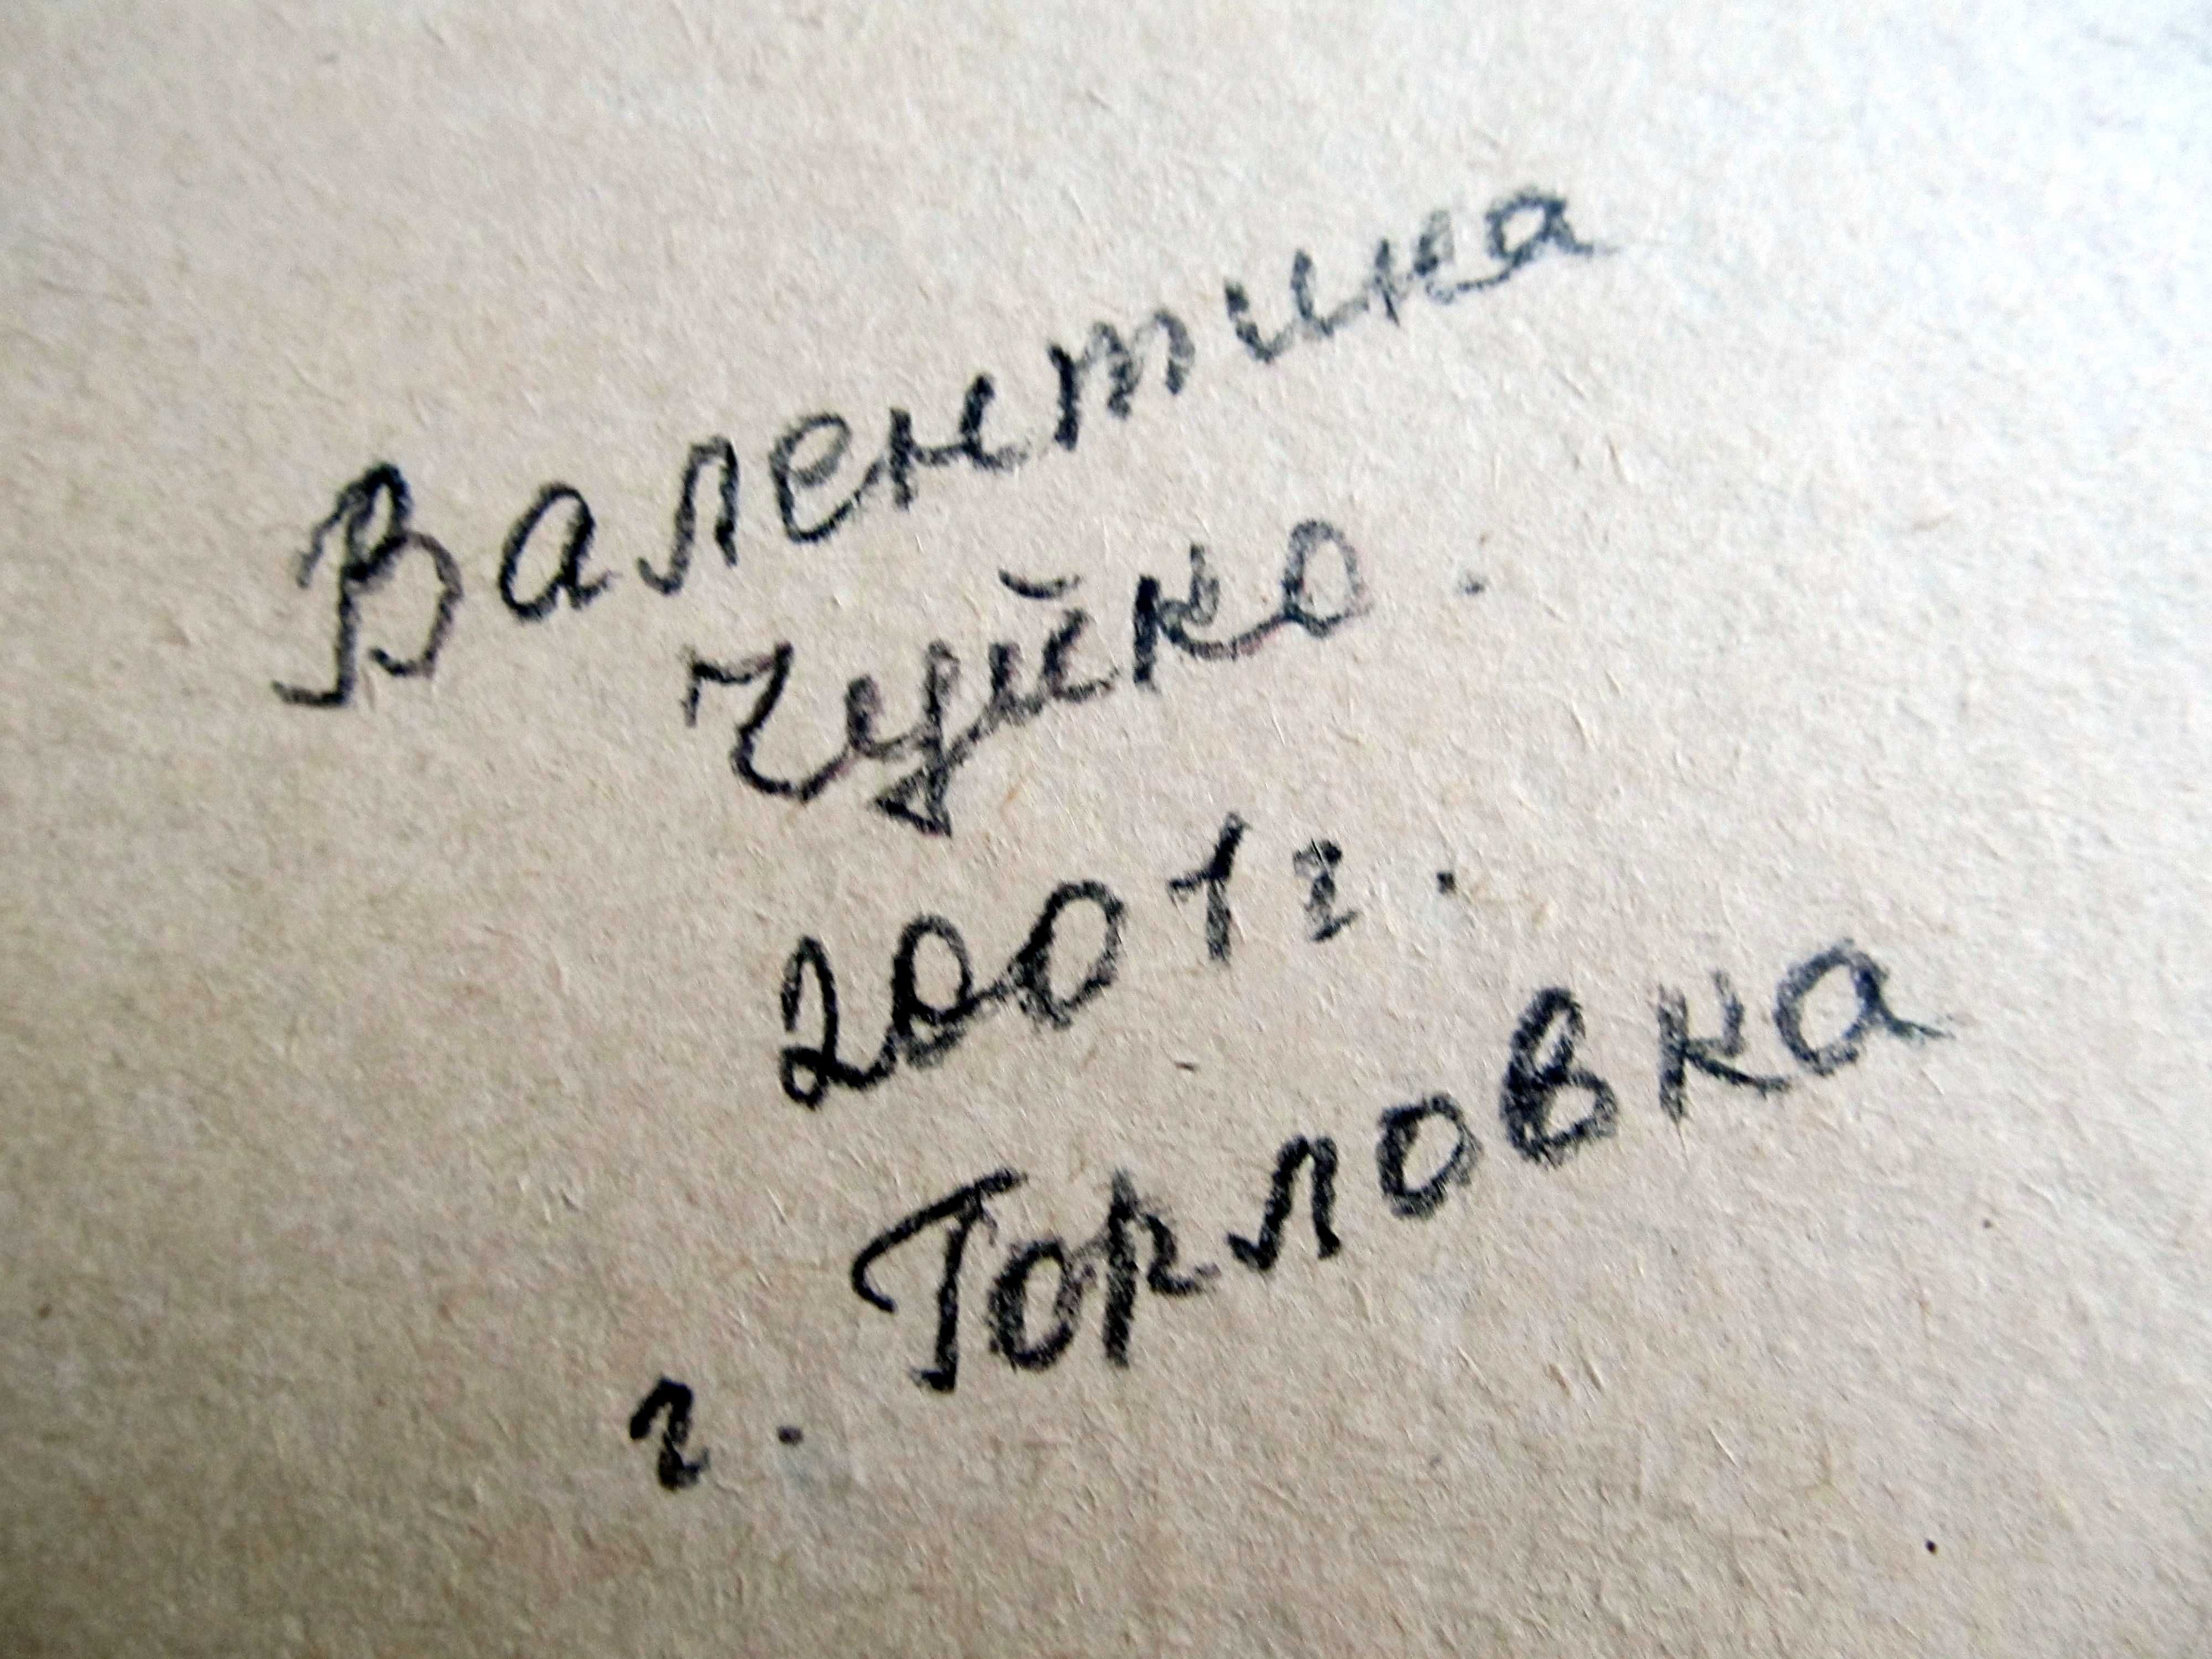 Валентина
Чуйко.
2001г.
г. Горловка